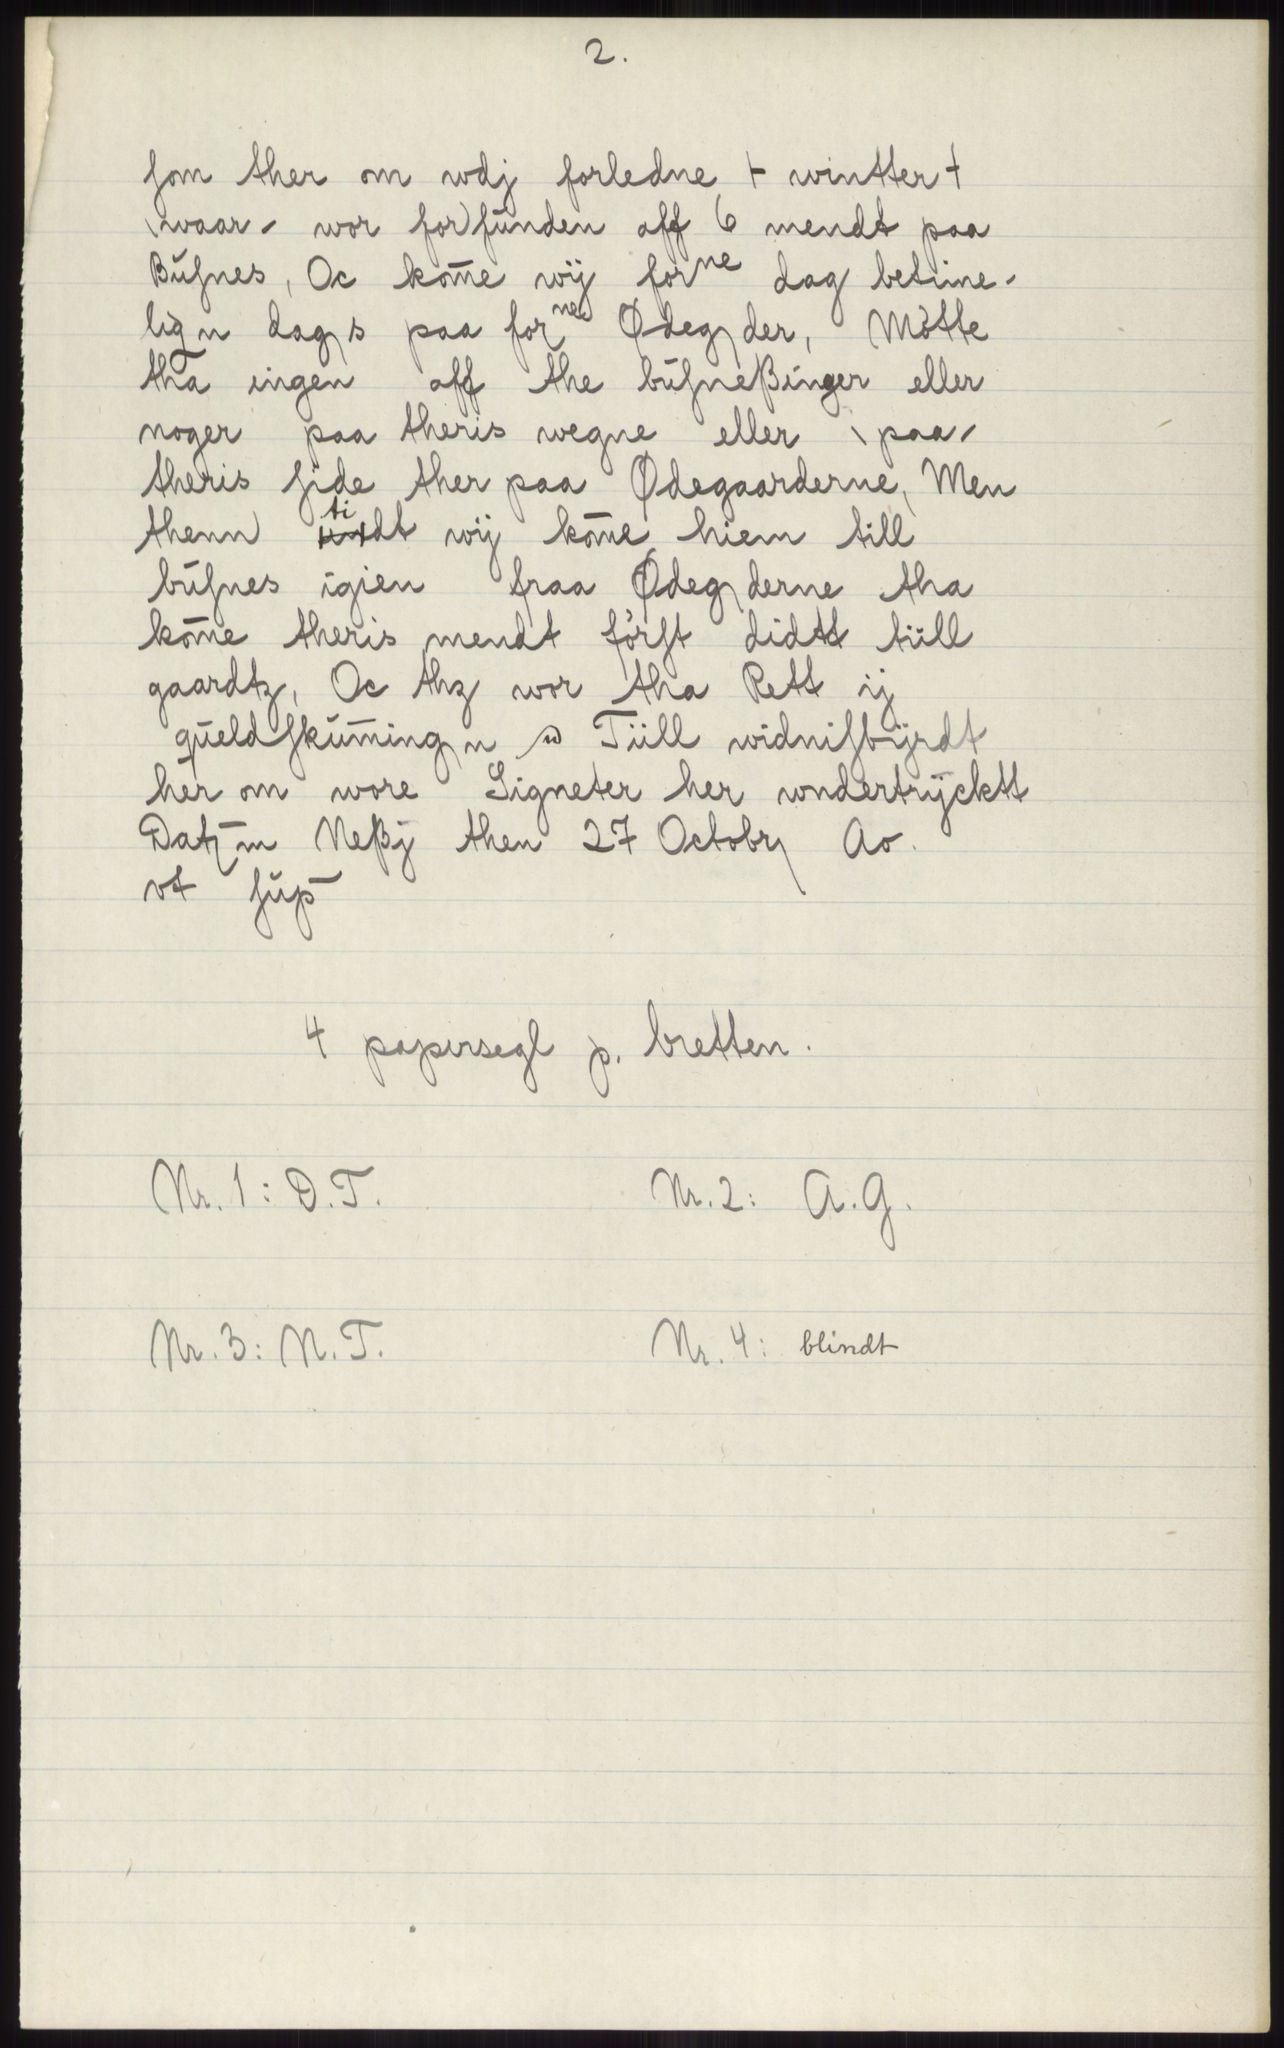 2.
ſom ther om wdj forledne ⊢ wintter ⊣
\waar- wor for)ſunden aff 6 mendt paa
Bŭſnes, Oc kom̄e wij forne dag betime-
lign dags paa forne Ødegder, Mötte
tha ingen aff the bŭſneßinger eller
noger paa theris wegne eller \paa/
theris ſide ther paa Ødegaarderne, Men
thenn tidt wij kom̄e hiem till
bŭſnes igien fraa Ødegderne tha
kom̄e theris mendt förſt didtt tiill
gaardtz, Oc thz wor tha Rett ij
qŭeldſkŭm̄ingn Tiill widniſbÿrdt
her om wore Signeter her wndertrÿcktt
Datz m Neßj then 27 Octobr Ao.
vt ſŭp̄
4 papirsegl p. bretten.
Nr. 1: D.T. Nr. 2: A.G.
Nr. 3: N.T. Nr. 4: blindt